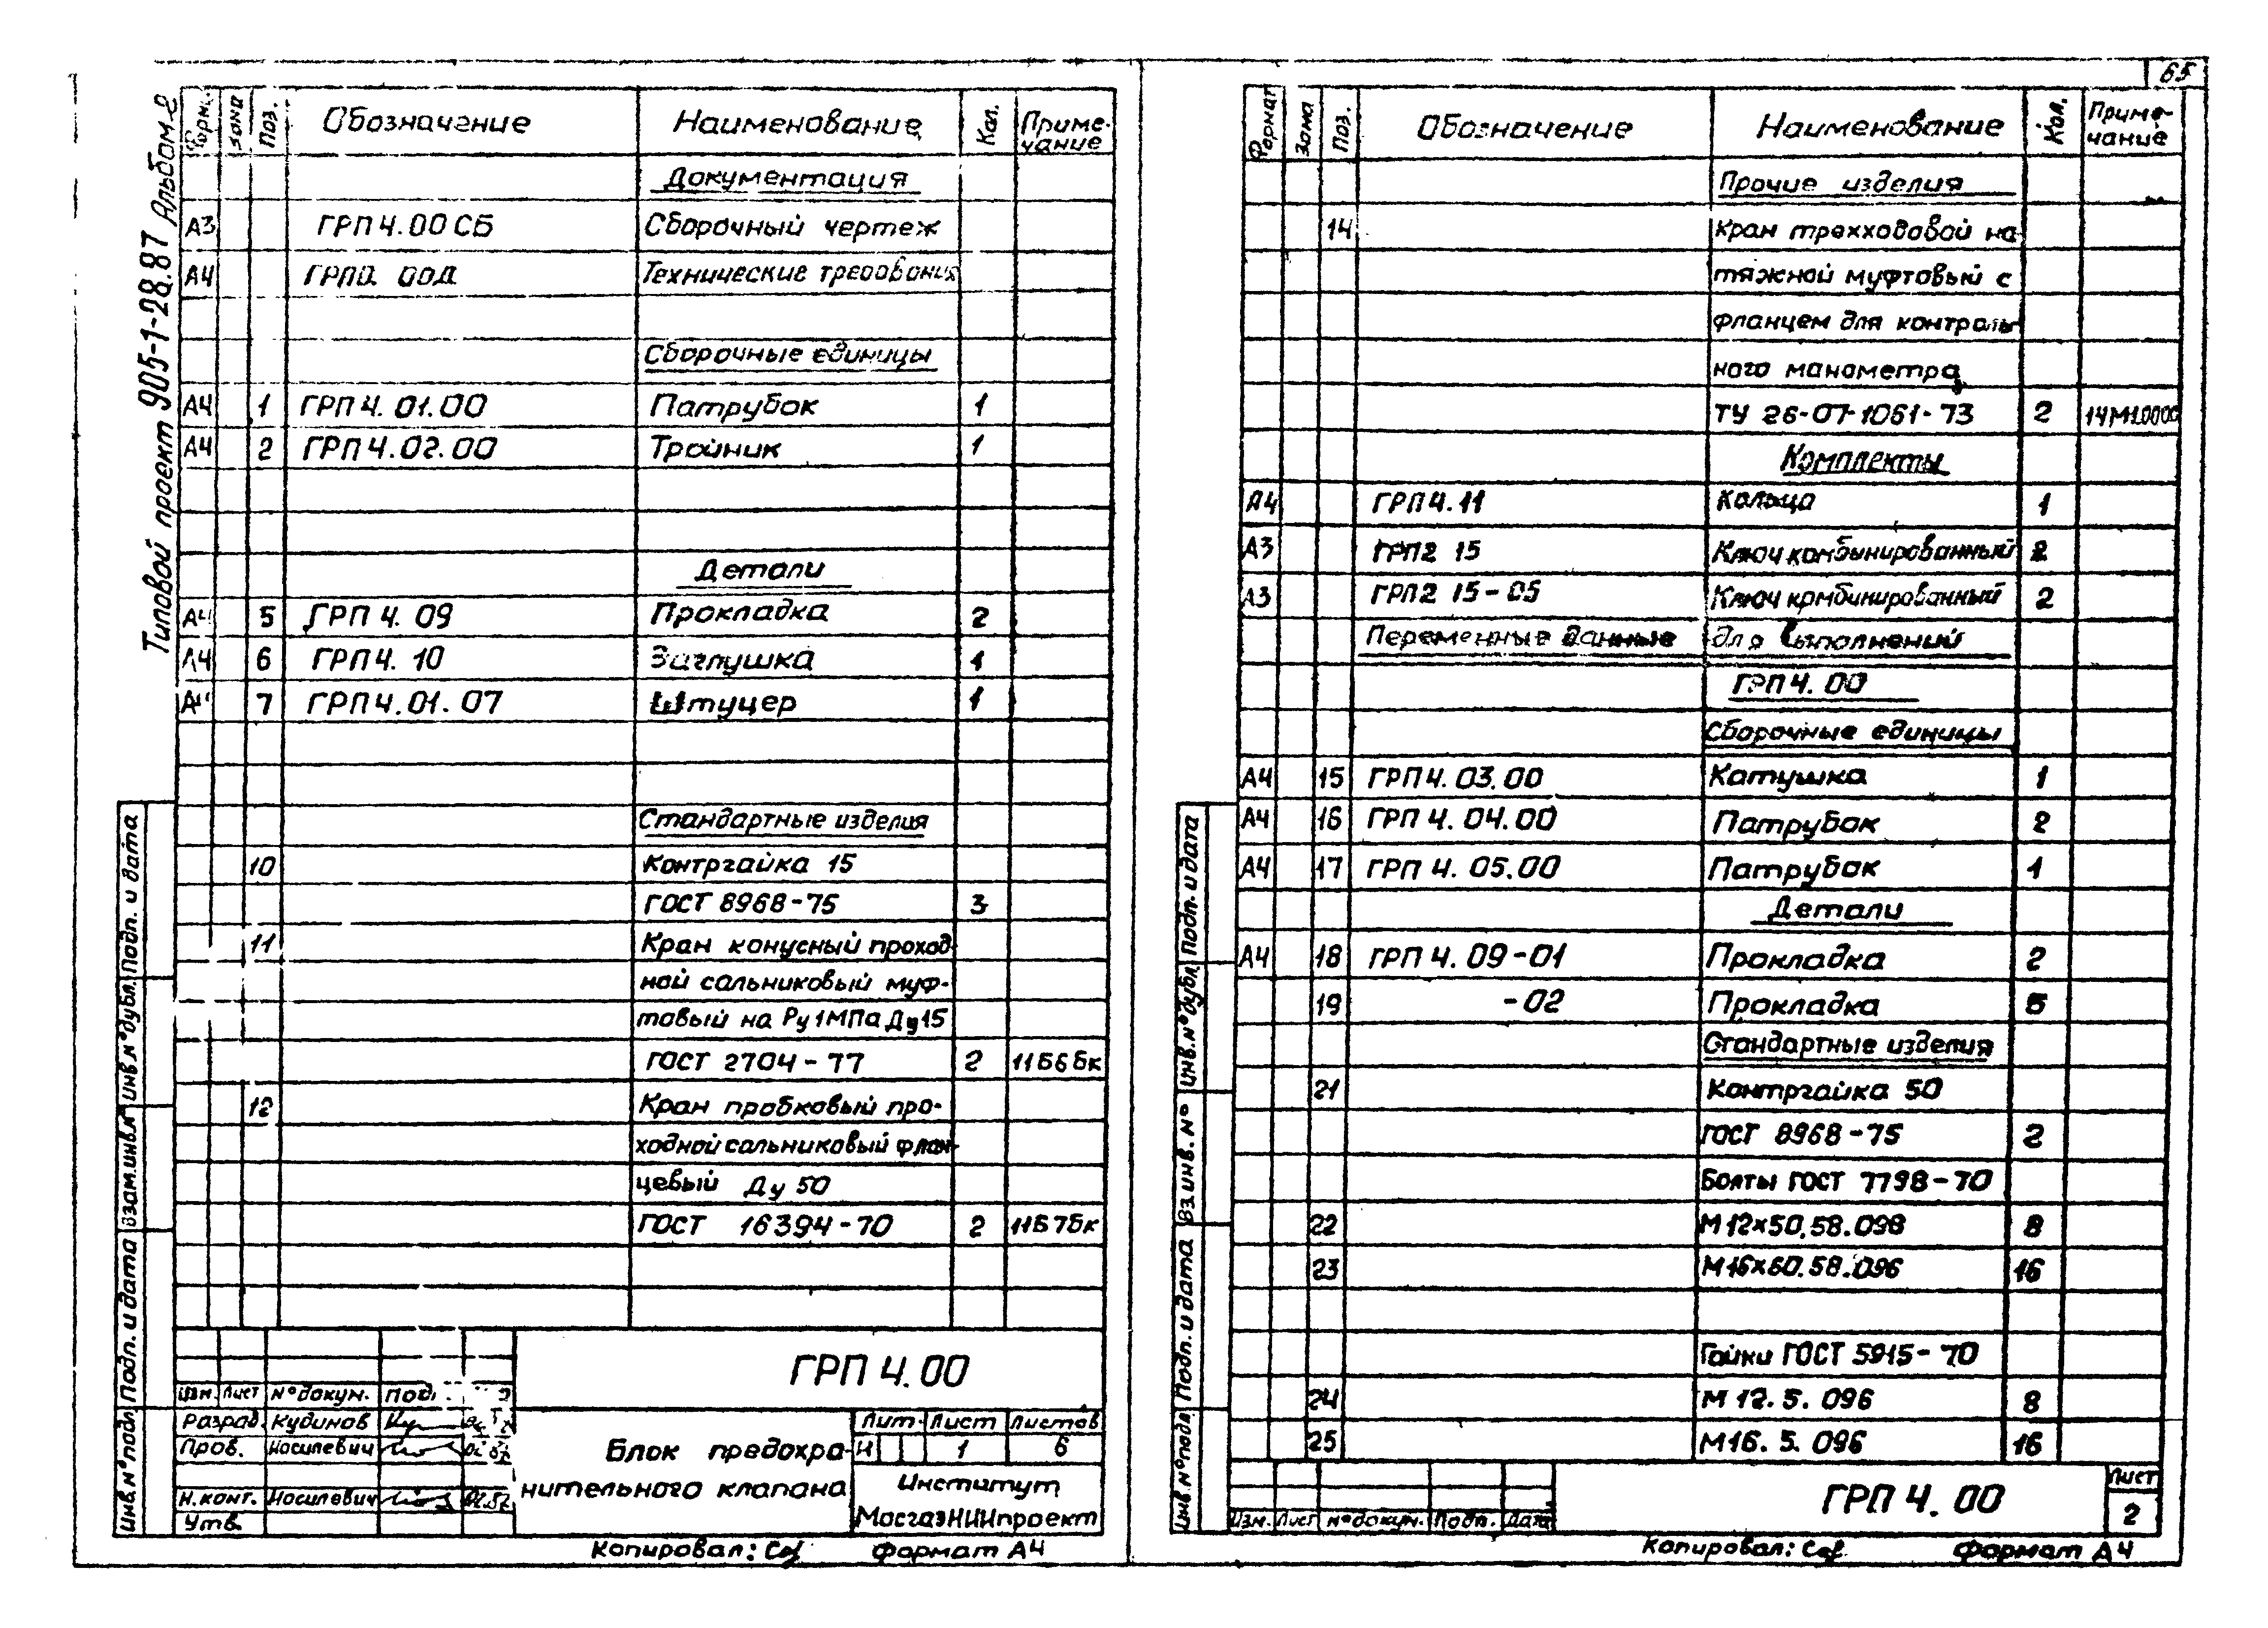 65
Типовой проект 905-1-28.87 Альбом 2
Форм. Зона Поз. Обозначение Наименование Кол. Приме-
чание
Документация
А3 ГРП 4.00 СБ Сборочный чертеж
А4 Технические требования
Сборочные единицы
А4 1 ГРП 4.01.00 Патрубок 1
А4 2 ГРП 4.02.00 Тройник 1
Детали
А4 5 ГРП 4.09 Прокладка 2
А4 6 ГРП 4.10 Заглушка 1
А4 7 ГРП 4.01.07 Штуцер 1
Стандартные изделия
10 Контргайка 15
ГОСТ 8968-75 3
11 Кран конусный проход-
ной сальниковый муф-
товый на Ру 1МПа Ду15
ГОСТ 2704-77 2 11Б6бк
12 Кран пробковый про-
ходной сальниковый флан-
цевый Ду 50
ГОСТ 16394-70 2 11Б7бк
ГРП 4.00
Изм. Лист № докум. Подп.
Разраб. Кудинов
Пров. Носилевич
Н.конт. Носилевич
Утв.
Блок предохра-
нительного клапана
Лит. Лист Листов
И 1 6
Институт
МосгазНИИпроект
Копировал: Формат А4
Инв.№подл. Подп. и дата Взам.инв.№ Инв.№дубл. Подп. и дата
Формат Зона Поз. Обозначение Наименование Кол. Приме-
чание
Прочие изделия
14 Кран трехходовой на-
тяжной муфтовый с
фланцем для контроль-
ного манометра
ТУ 26-07-1061-73 2
Комплекты
А4 ГРП 4.11 Кольца 1
А3 ГРП2 15 Ключ комбинированный 2
А3 ГРП2 15-05 Ключ комбинированный 2
Переменные данные для выполнений
ГРП 4.00
Сборочные единицы
А4 15 ГРП 4.03.00 Катушка 1
А4 16 ГРП 4.04.00 Патрубок 2
А4 17 ГРП 4.05.00 Патрубок 1
Детали
А4 18 ГРП 4.09-01 Прокладка 2
19 -02 Прокладка 5
Стандартные изделия
21 Контргайка 50
ГОСТ 8968-75 2
Болты ГОСТ 7798-70
22 М12×50.58.096 8
23 М16×60.58.096 16
Гайки ГОСТ 5915-70
24 М 12.5.096 8
25 М16.5.096 16
ГРП 4.00
Лист
2
Изм. Лист № докум. Подп. Дата
Копировал: Формат А4
Инв.№подл. Подп. и дата Вз.инв.№ Инв.№дубл. Подп. и дата